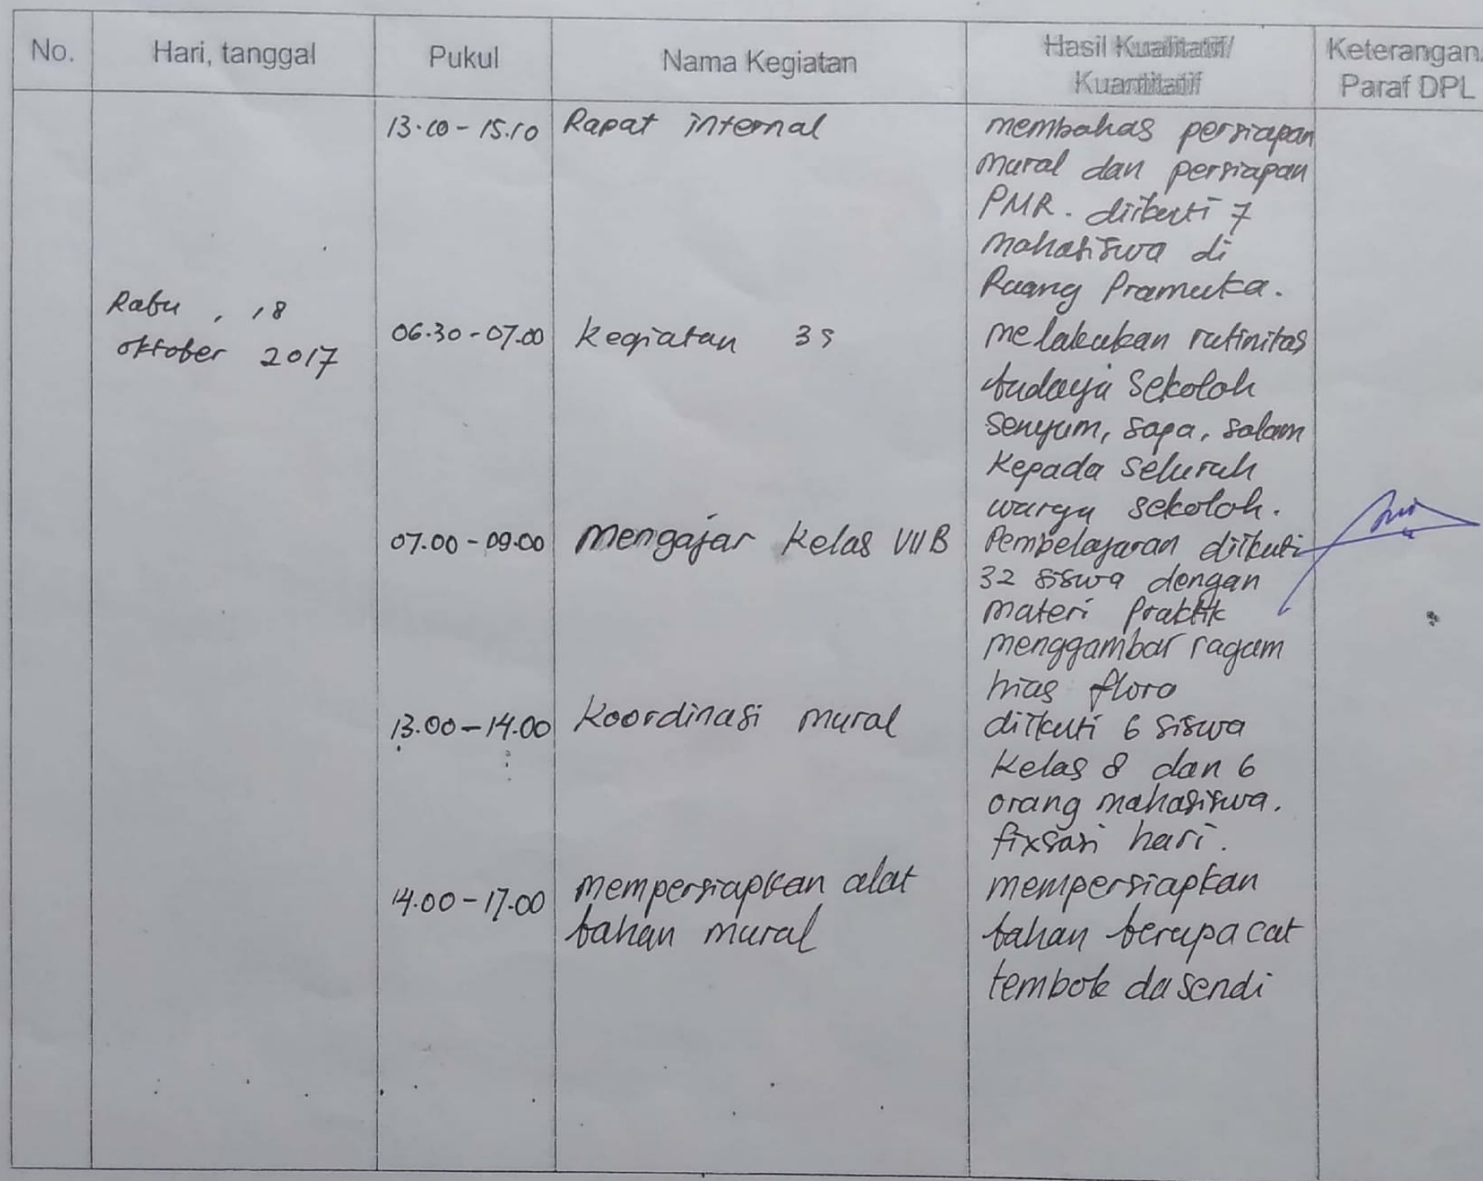 No.
Hari, tanggal
Pukul
Nama Kegiatan
Hasil Kualitatif/
Kuantitatif
Keterangan/
Paraf DPL
13.10 - 15.10 Rapat internal
membahas persiapan
mural dan persiapan
PMR. diikuti 7
mahasiswa di
Ruang Pramuka.
Rabu, 18
oktober 2017
06.30 - 07.00 kegiatan 3S
melakukan rutinitas
budaya sekolah
senyum, sapa, salam
kepada seluruh
warga sekolah.
07.00 - 09.00 mengajar kelas VIIB
Pembelajaran diikuti
32 siswa dengan
materi Praktik
menggambar ragam
hias flora
13.00 - 14.00 koordinasi mural
diikuti 6 siswa
kelas 8 dan 6
orang mahasiswa.
fixsasi hari.
14.00 - 17.00 mempersiapkan alat
bahan mural
mempersiapkan
bahan berupa cat
tembok da sendi